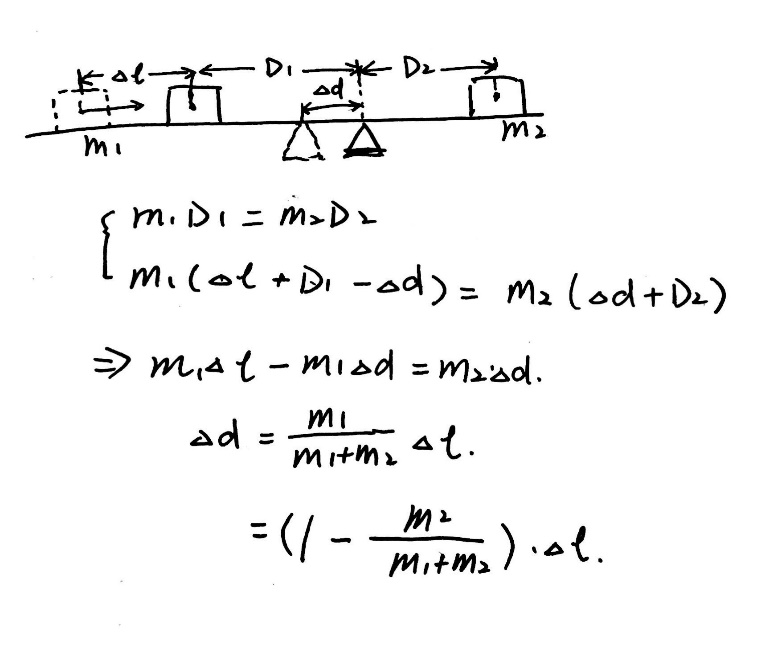 Δl D₁ D₂
Δd
m₁ m₂
m₁D₁ = m₂D₂
m₁(Δl + D₁ - Δd) = m₂(Δd + D₂)
⇒ m₁Δl - m₁Δd = m₂Δd.
Δd = m₁/(m₁+m₂) Δl.
= (1 - m₂/(m₁+m₂)) · Δl.